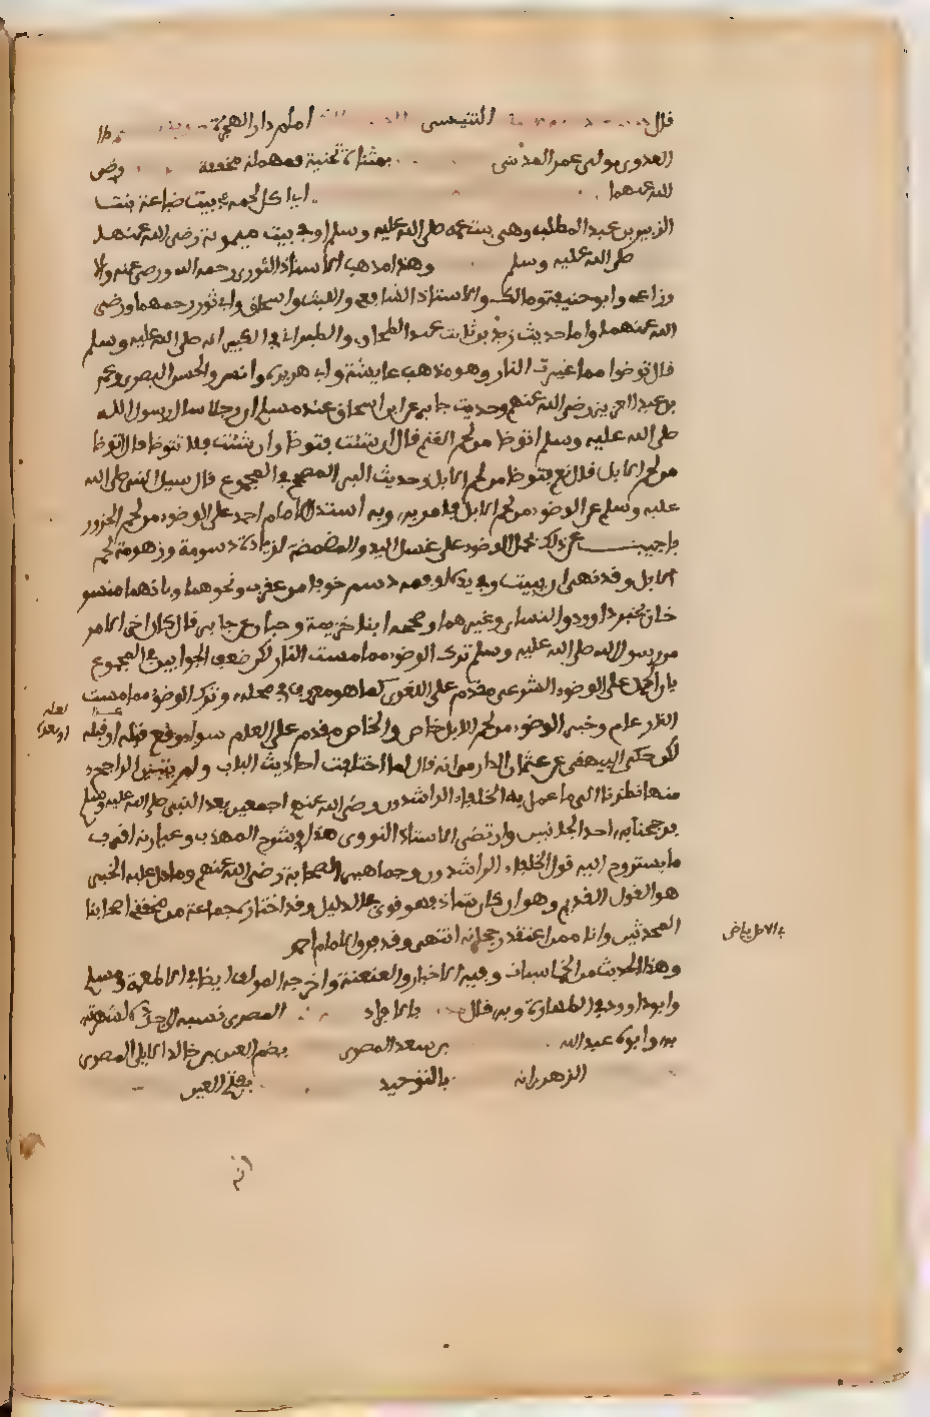 قال التنيسي امام دار الهجرة
العدوي مولى عمر المدني بمثناة تحتية ومهملة مخففة رضي
الله عنهما اي اكل لحمه في بيت ضباعة بنت
الزبير بن عبد المطلب وهي بنت عمه صلى الله عليه وسلم او في بيت ميمونة رضي الله عنها
صلى الله عليه وسلم وهذا مذهب الاستاذ الثوري رحمه الله ورضي عنه والا
وزاعي وابو حنيفة ومالك والاستاذ الشافعي والليث واسحاق وابي ثور رحمهم ورضي
الله عنهم واما حديث زيد بن ثابت عند الطحاوي والطبراني في الكبير انه صلى الله عليه وسلم
قال توضوا مما غيرت النار وهو مذهب عايشة وابي هريرة وانس والحسن البصري وعمر
بن عبد العزيز رضي الله عنهم وحديث جابر عند مسلم ان رجلا سال رسول الله
صلى الله عليه وسلم اتوضا من لحم الغنم قال ان شئت فتوضا وان شئت فلا تتوضا قال اتوضا
من لحم الابل قال نعم فتوضا من لحم الابل وحديث البرا المصحح في المجموع قال سيل النبي صلى الله
عليه وسلم عن الوضوء من لحم الابل فامر به وبه استدل الامام احمد على الوضوء من لحم الجزور
فاجيب عن ذلك بحمل الوضوء على غسل اليد والمضمضة لزيادة دسومة وزهومة لحم
الابل وقد نهى ان يبيت وفي يده او فمه دسم خوفا من عقرب ونحوها وبانهما منسو
خان بخبر داوود والنساي وغيرهما وصححه ابنا خزيمة وحبان عن جابر قال كان اخر الامر
من رسول الله صلى الله عليه وسلم ترك الوضوء مما مست النار لكن ضعف الجوابين في المجموع
بان الحمل على الوضوء الشرعي مقدم على اللغوي كما هو معروف في محله وترك الوضوء مما مست
النار عام وخبر الوضوء من لحم الابل خاص والخاص مقدم على العام سواء وقع قبله او قبله
لعله
او بعده
لكن حكى البيهقي عن عثمان الدارمي انه قال لما اختلفت احاديث الباب ولم يتبين الراجح
منها نظرنا الى ما عمل به الخلفاء الراشدون رضي الله عنهم اجمعين بعد النبي صلى الله عليه وسلم
فرجحنا به احد الجانبين وارتضى الاستاذ النووي هذا في شرح المهذب وعبارته اقرب
ما يستروح اليه قول الخلفاء الراشدين وجماهير الصحابة رضي الله عنهم وما دل عليه الخبر
هو القول القديم وهو ان كان شاذ فهو قوي في الدليل وقد اختاره جماعة من محققي اصحابنا
المحدثين وانا ممن اعتقد رجحانه انتهى وقد فرق الامام احمد
في الاصل بياض
وهذا الحديث من الخماسيات وفيه الاخبار والعنعنة واخرجه المولف ايضا في الاطعمة ومسلم
وابو داوود في الطهارة وبه قال بالافراد المصري نسبه الى جده لشهرته
به وابوه عبد الله بن سعد المصري بضم العين بن خالد الايلي المصري
الزهري انه بالتوحيد بفتح العين
انه